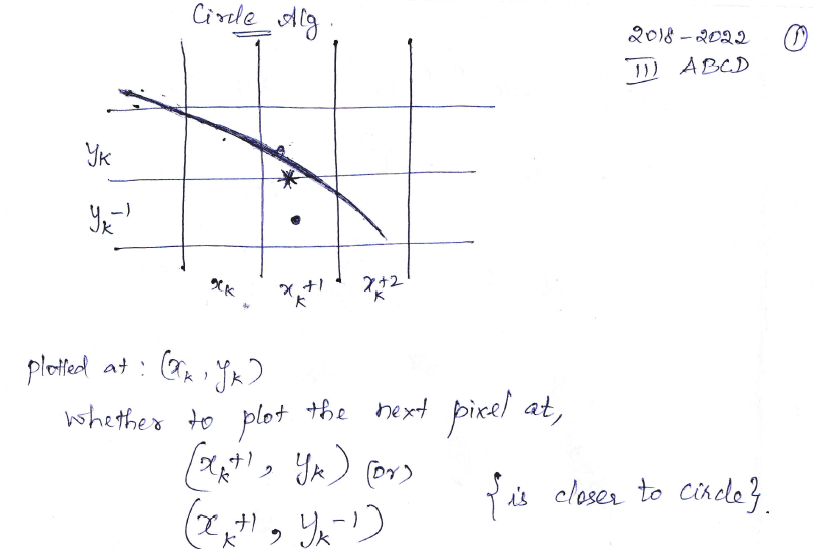 Circle Alg.
2018-2022 ①
III ABCD
yk
yk-1
xk xk+1 xk+2
plotted at : (xk, yk)
whether to plot the next pixel at,
(xk+1, yk) (or)
{is closer to circle}.
(xk+1, yk-1)